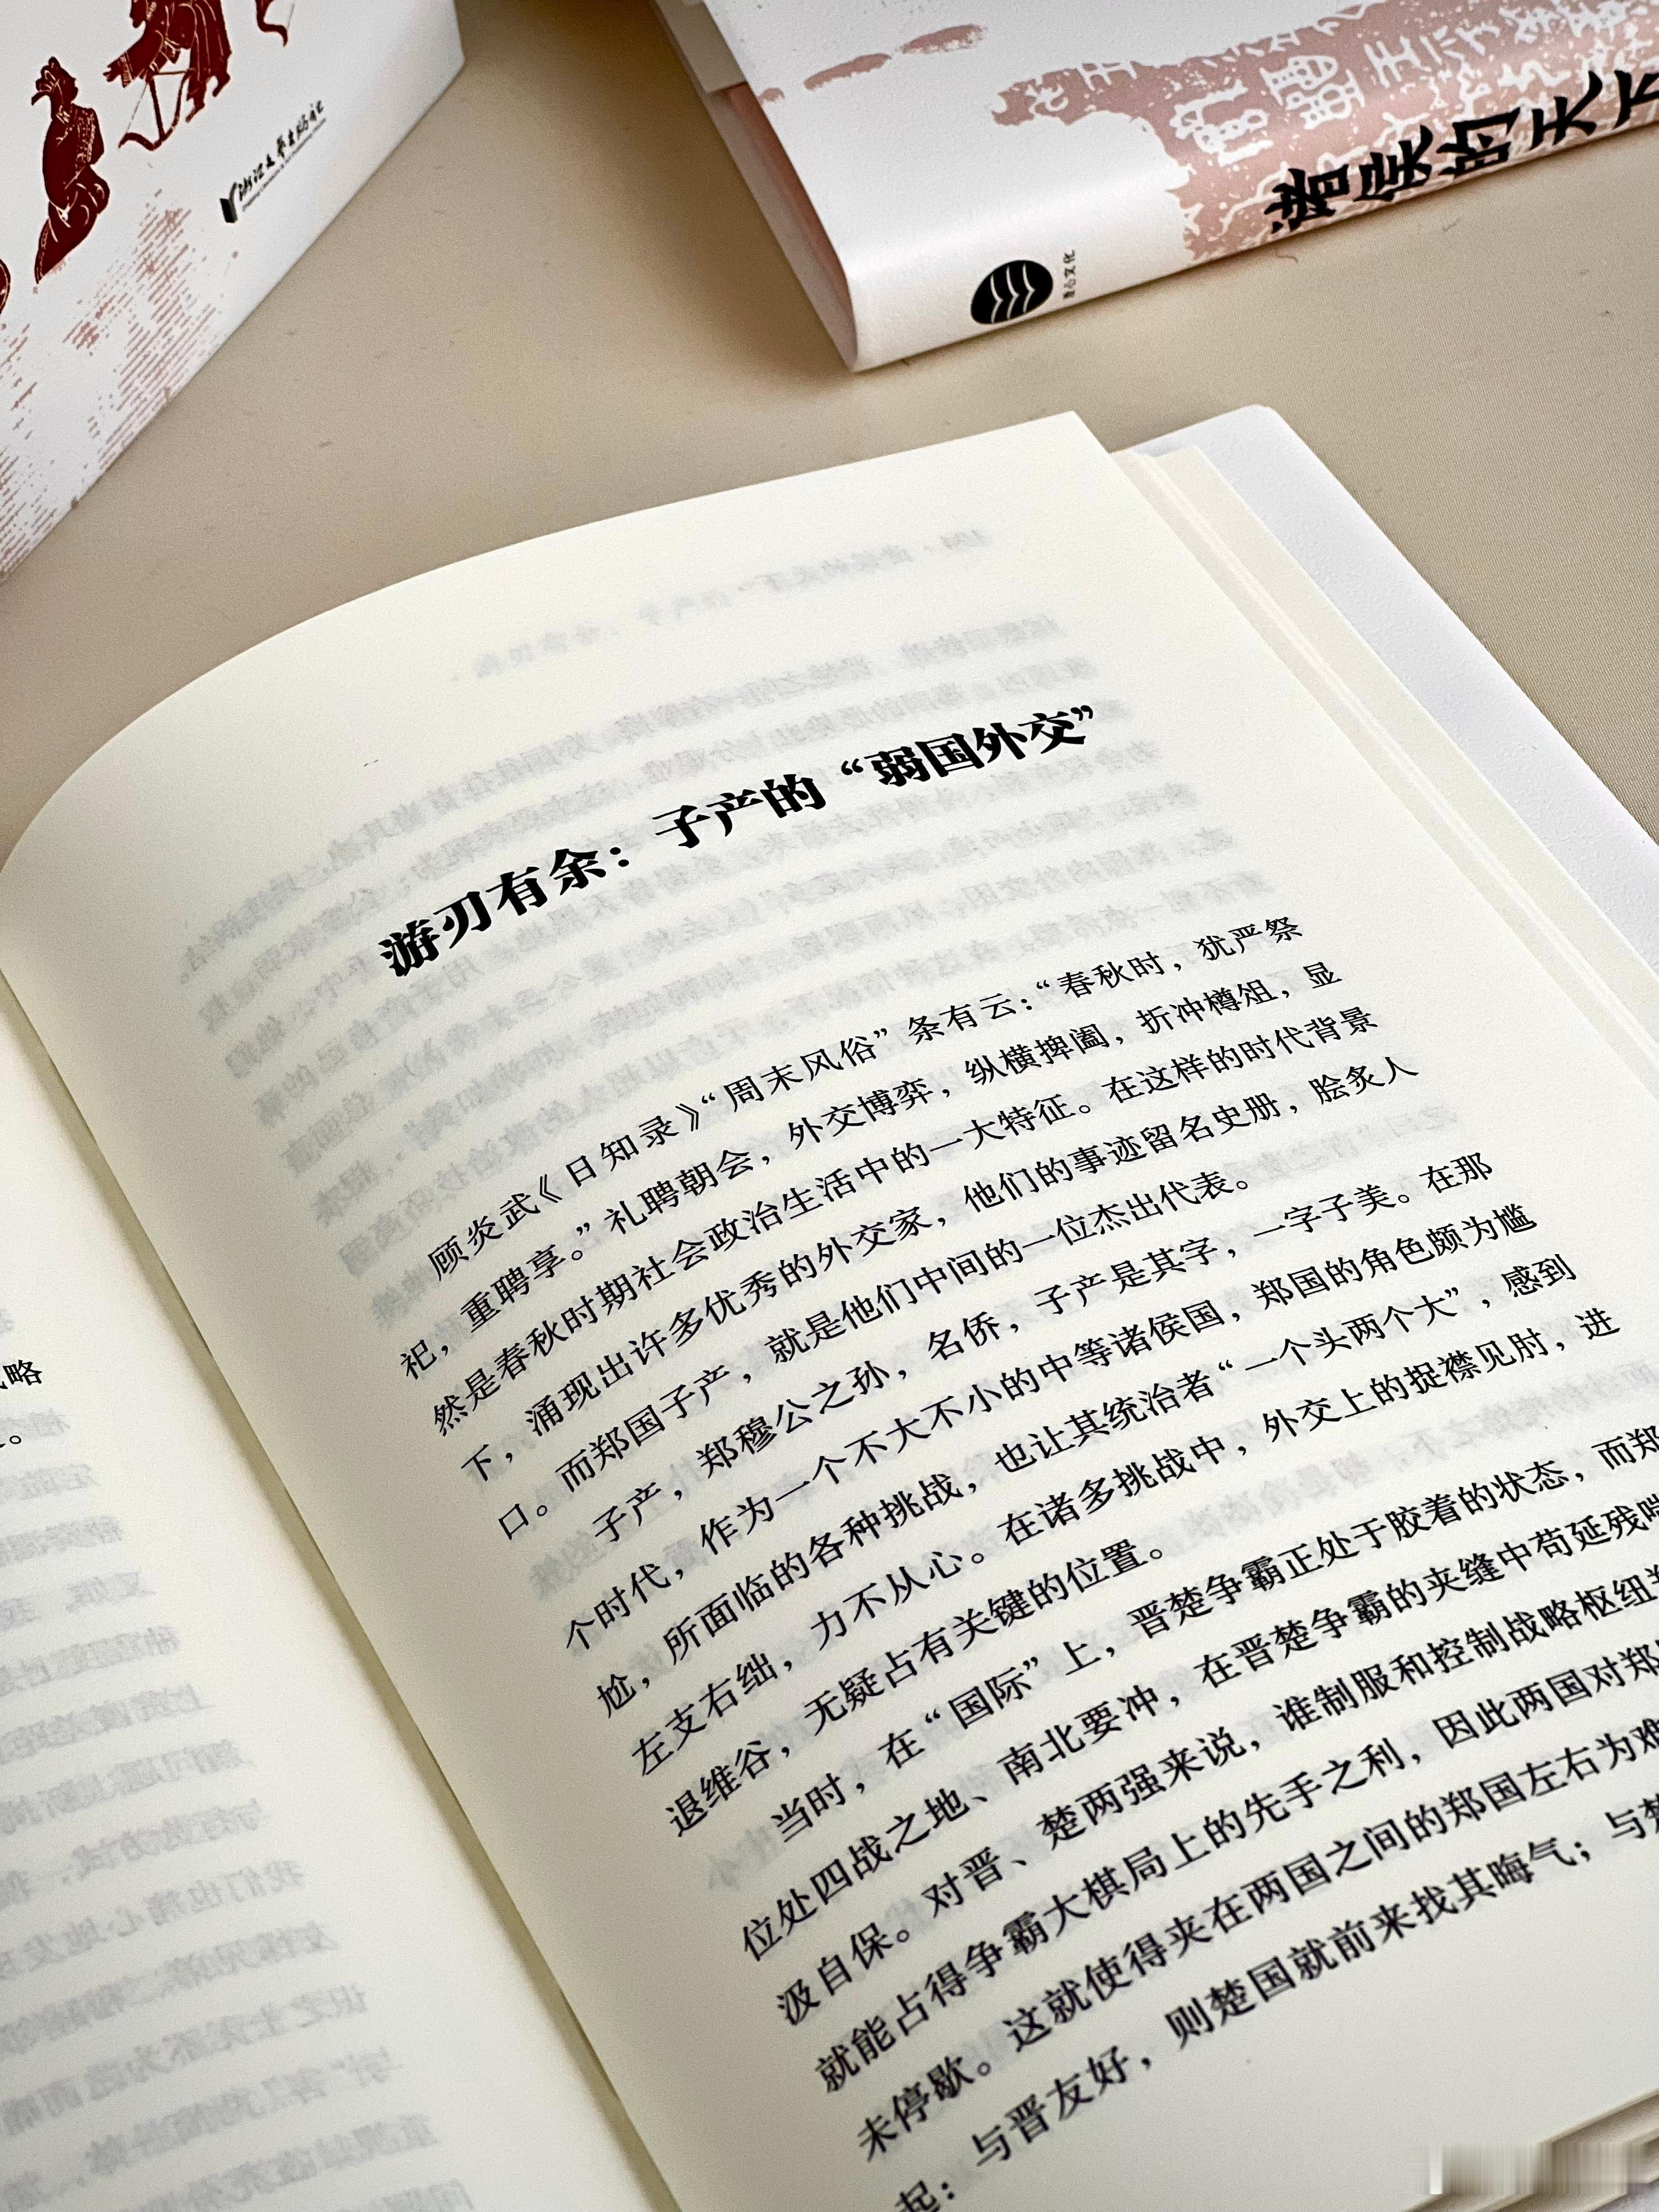 浙江文艺出版社
诸侯的天下
游刃有余：子产的“弱国外交”
顾炎武《日知录》“周末风俗”条有云：“春秋时，犹严祭
祀，重聘享。”礼聘朝会，外交博弈，纵横捭阖，折冲樽俎，显
然是春秋时期社会政治生活中的一大特征。在这样的时代背景
下，涌现出许多优秀的外交家，他们的事迹留名史册，脍炙人
口。而郑国子产，就是他们中间的一位杰出代表。
子产，郑穆公之孙，名侨，子产是其字，一字子美。在那
个时代，作为一个不大不小的中等诸侯国，郑国的角色颇为尴
尬，所面临的各种挑战，也让其统治者“一个头两个大”，感到
左支右绌，力不从心。在诸多挑战中，外交上的捉襟见肘，进
退维谷，无疑占有关键的位置。
当时，在“国际”上，晋楚争霸正处于胶着的状态，而郑
位处四战之地、南北要冲，在晋楚争霸的夹缝中苟延残喘
汲自保。对晋、楚两强来说，谁制服和控制战略枢纽
就能占得争霸大棋局上的先手之利，因此两国对郑
未停歇。这就使得夹在两国之间的郑国左右为难
起：与晋友好，则楚国就前来找其晦气；与楚
略